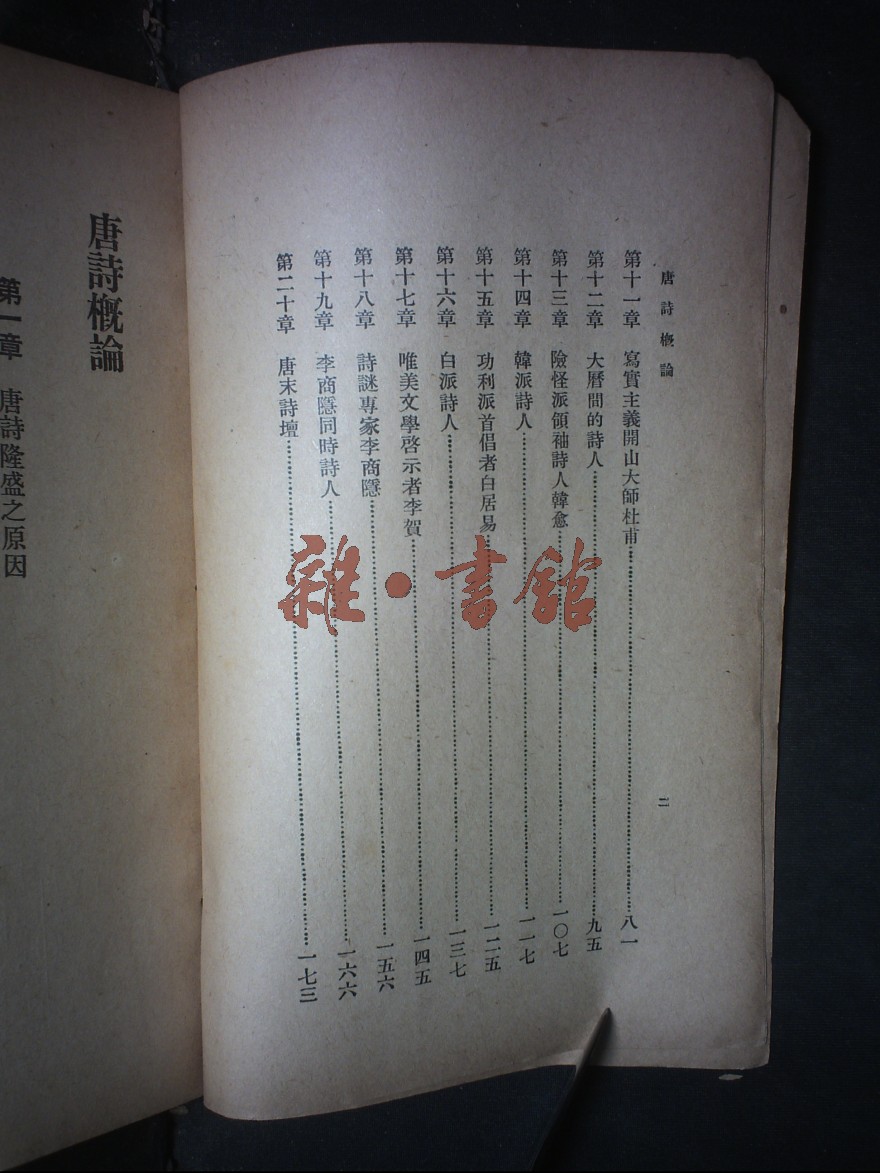 唐詩概論
二
第十一章 寫實主義開山大師杜甫……八一
第十二章 大曆間的詩人……九五
第十三章 險怪派領袖詩人韓愈……一〇七
第十四章 韓派詩人……一一七
第十五章 功利派首倡者白居易……一二五
第十六章 白派詩人……一三七
第十七章 唯美文學啓示者李賀……一四五
第十八章 詩謎專家李商隱……一五六
第十九章 李商隱同時詩人……一六六
第二十章 唐末詩壇……一七三
唐詩概論
第一章 唐詩隆盛之原因
雜·書館